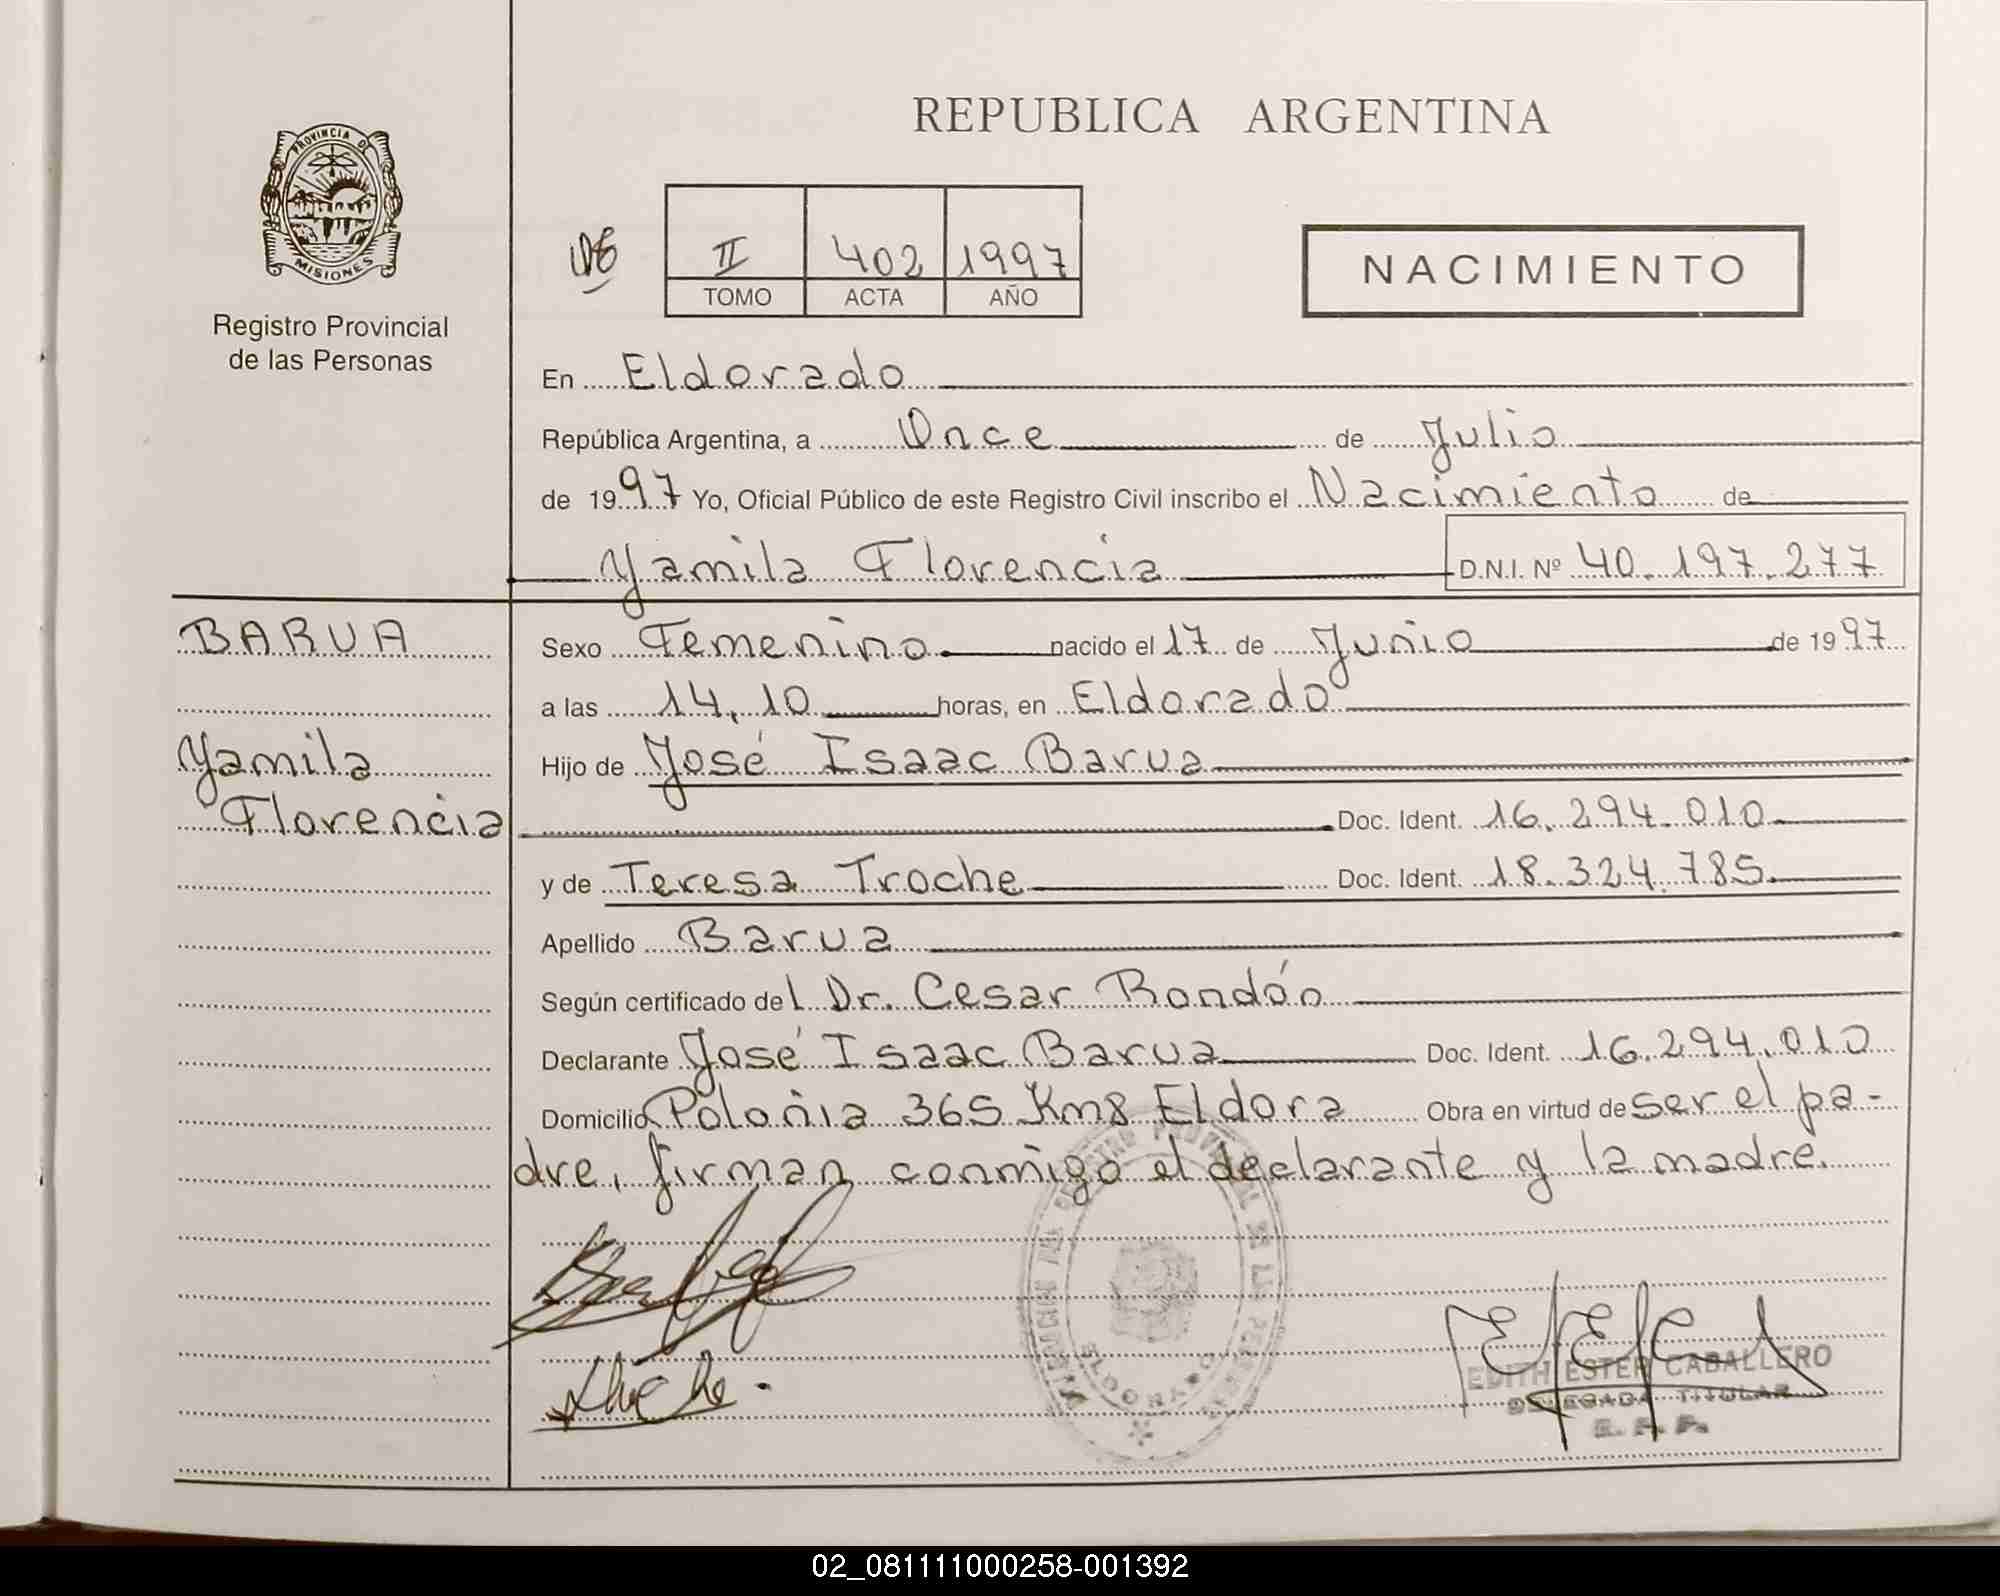 PROVINCIA DE
MISIONES
Registro Provincial
de las Personas
REPUBLICA ARGENTINA
II 402 1997
TOMO ACTA AÑO
NACIMIENTO
En Eldorado
República Argentina, a Once de Julio
de 1997 Yo, Oficial Público de este Registro Civil inscribo el Nacimiento de
Yamila Florencia D.N.I. Nº 40.197.277
BARUA
Yamila
Florencia
Sexo Femenino nacido el 17 de Junio de 1997
a las 14,10 horas, en Eldorado
Hijo de José Isaac Barua
Doc. Ident. 16.294.010
y de Teresa Troche Doc. Ident. 18.324.785
Apellido Barua
Según certificado del Dr. Cesar Rondón
Declarante José Isaac Barua Doc. Ident. 16.294.010
Domicilio Polonia 365 Km8 Eldora Obra en virtud de ser el pa-
dre, firman conmigo el declarante y la madre.
EDITH ESTER CABALLERO
DELEGADA TITULAR
02_081111000258-001392